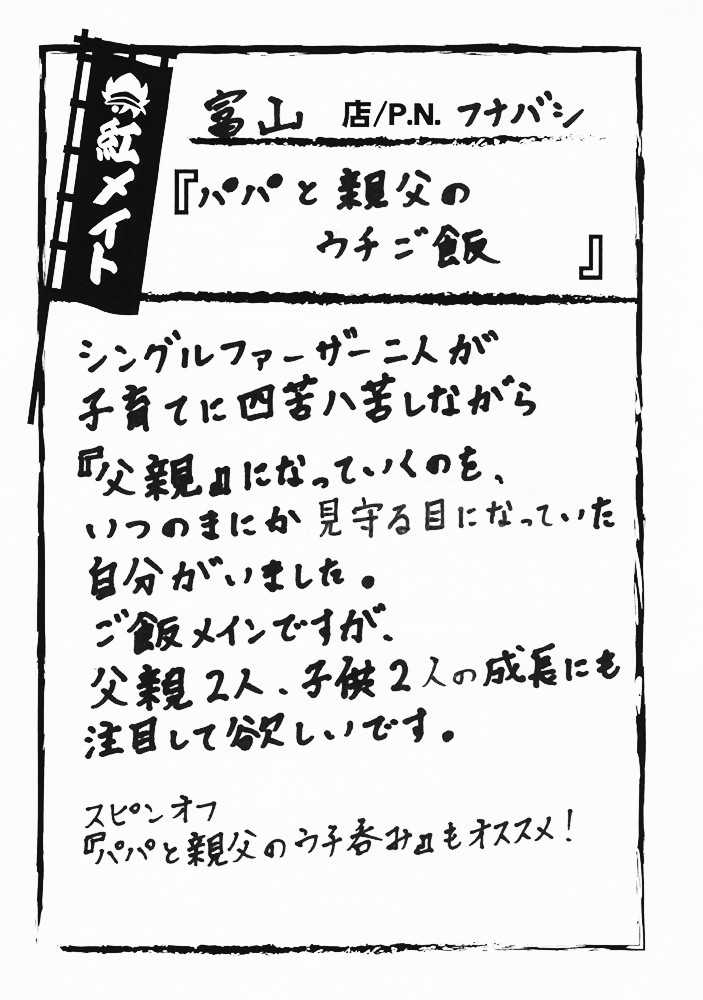 紅メイト
富山 店/P.N. フナバシ
『パパと親父の
ウチご飯
』
シングルファーザー二人が
子育てに四苦八苦しながら
『父親』になっていくのを、
いつのまにか見守る目になっていた
自分がいました。
ご飯メインですが、
父親2人、子供2人の成長にも
注目して欲しいです。
スピンオフ
『パパと親父のウチ呑み』もオススメ!